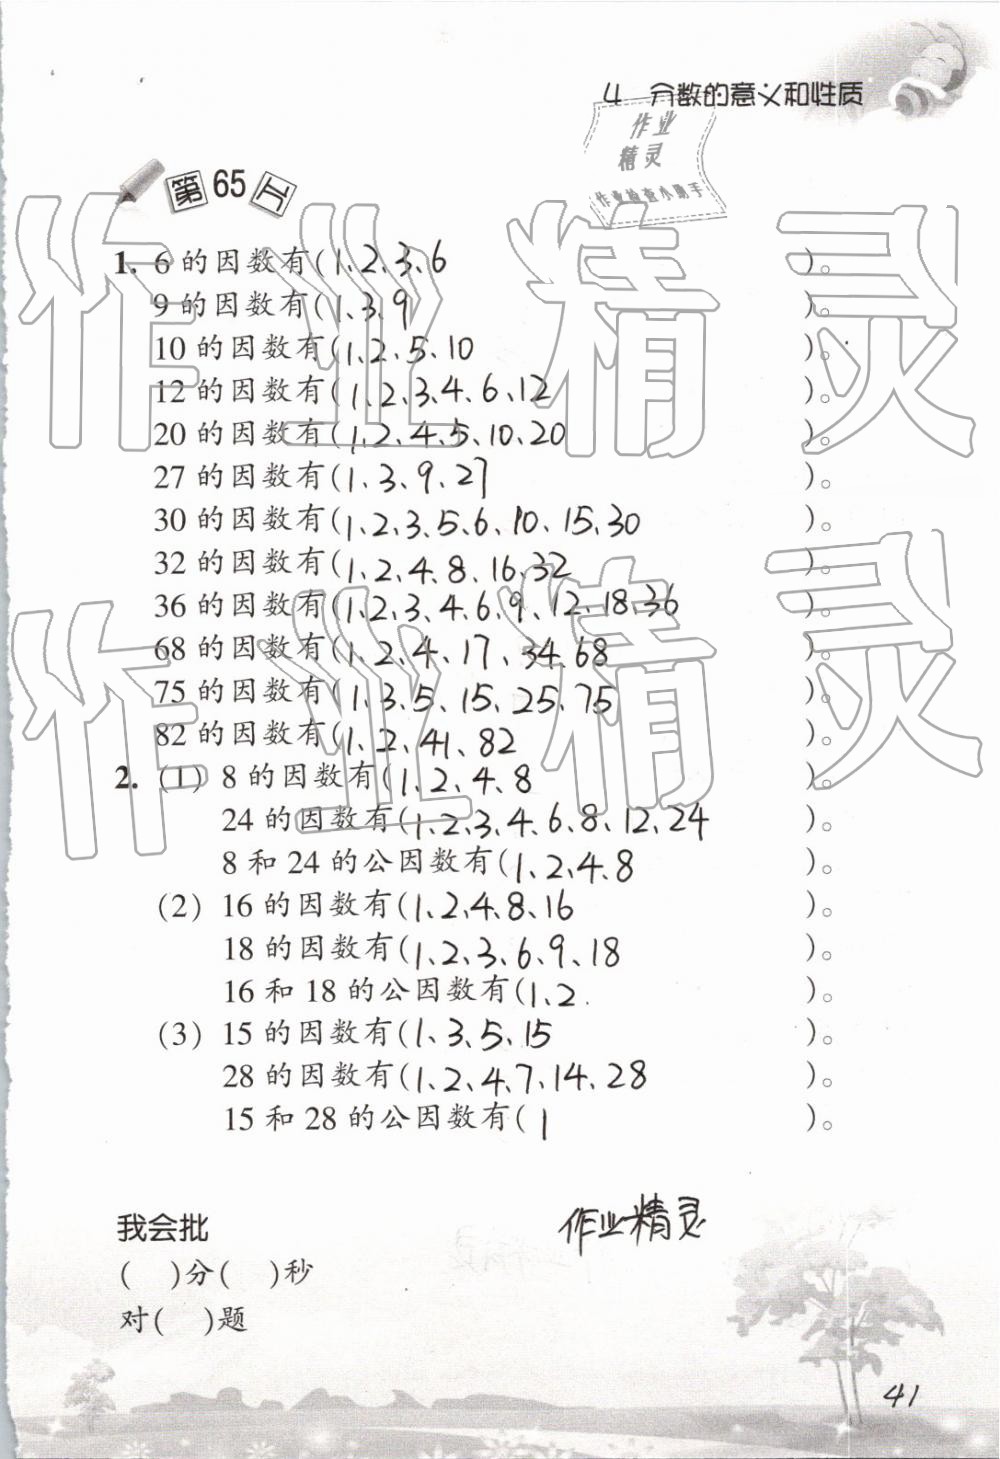 4 分数的意义和性质
作业
精灵
作业检查小助手
第65片
1. 6的因数有(1、2、3、6)。
9的因数有(1、3、9)。
10的因数有(1、2、5、10)。
12的因数有(1、2、3、4、6、12)。
20的因数有(1、2、4、5、10、20)。
27的因数有(1、3、9、27)。
30的因数有(1、2、3、5、6、10、15、30)。
32的因数有(1、2、4、8、16、32)。
36的因数有(1、2、3、4、6、9、12、18、36)。
68的因数有(1、2、4、17、34、68)。
75的因数有(1、3、5、15、25、75)。
82的因数有(1、2、41、82)。
2. (1) 8的因数有(1、2、4、8)。
24的因数有(1、2、3、4、6、8、12、24)。
8和24的公因数有(1、2、4、8)。
(2) 16的因数有(1、2、4、8、16)。
18的因数有(1、2、3、6、9、18)。
16和18的公因数有(1、2)。
(3) 15的因数有(1、3、5、15)。
28的因数有(1、2、4、7、14、28)。
15和28的公因数有(1)。
作业精灵
作业精灵
作业精灵
我会批
( )分( )秒
对( )题
41